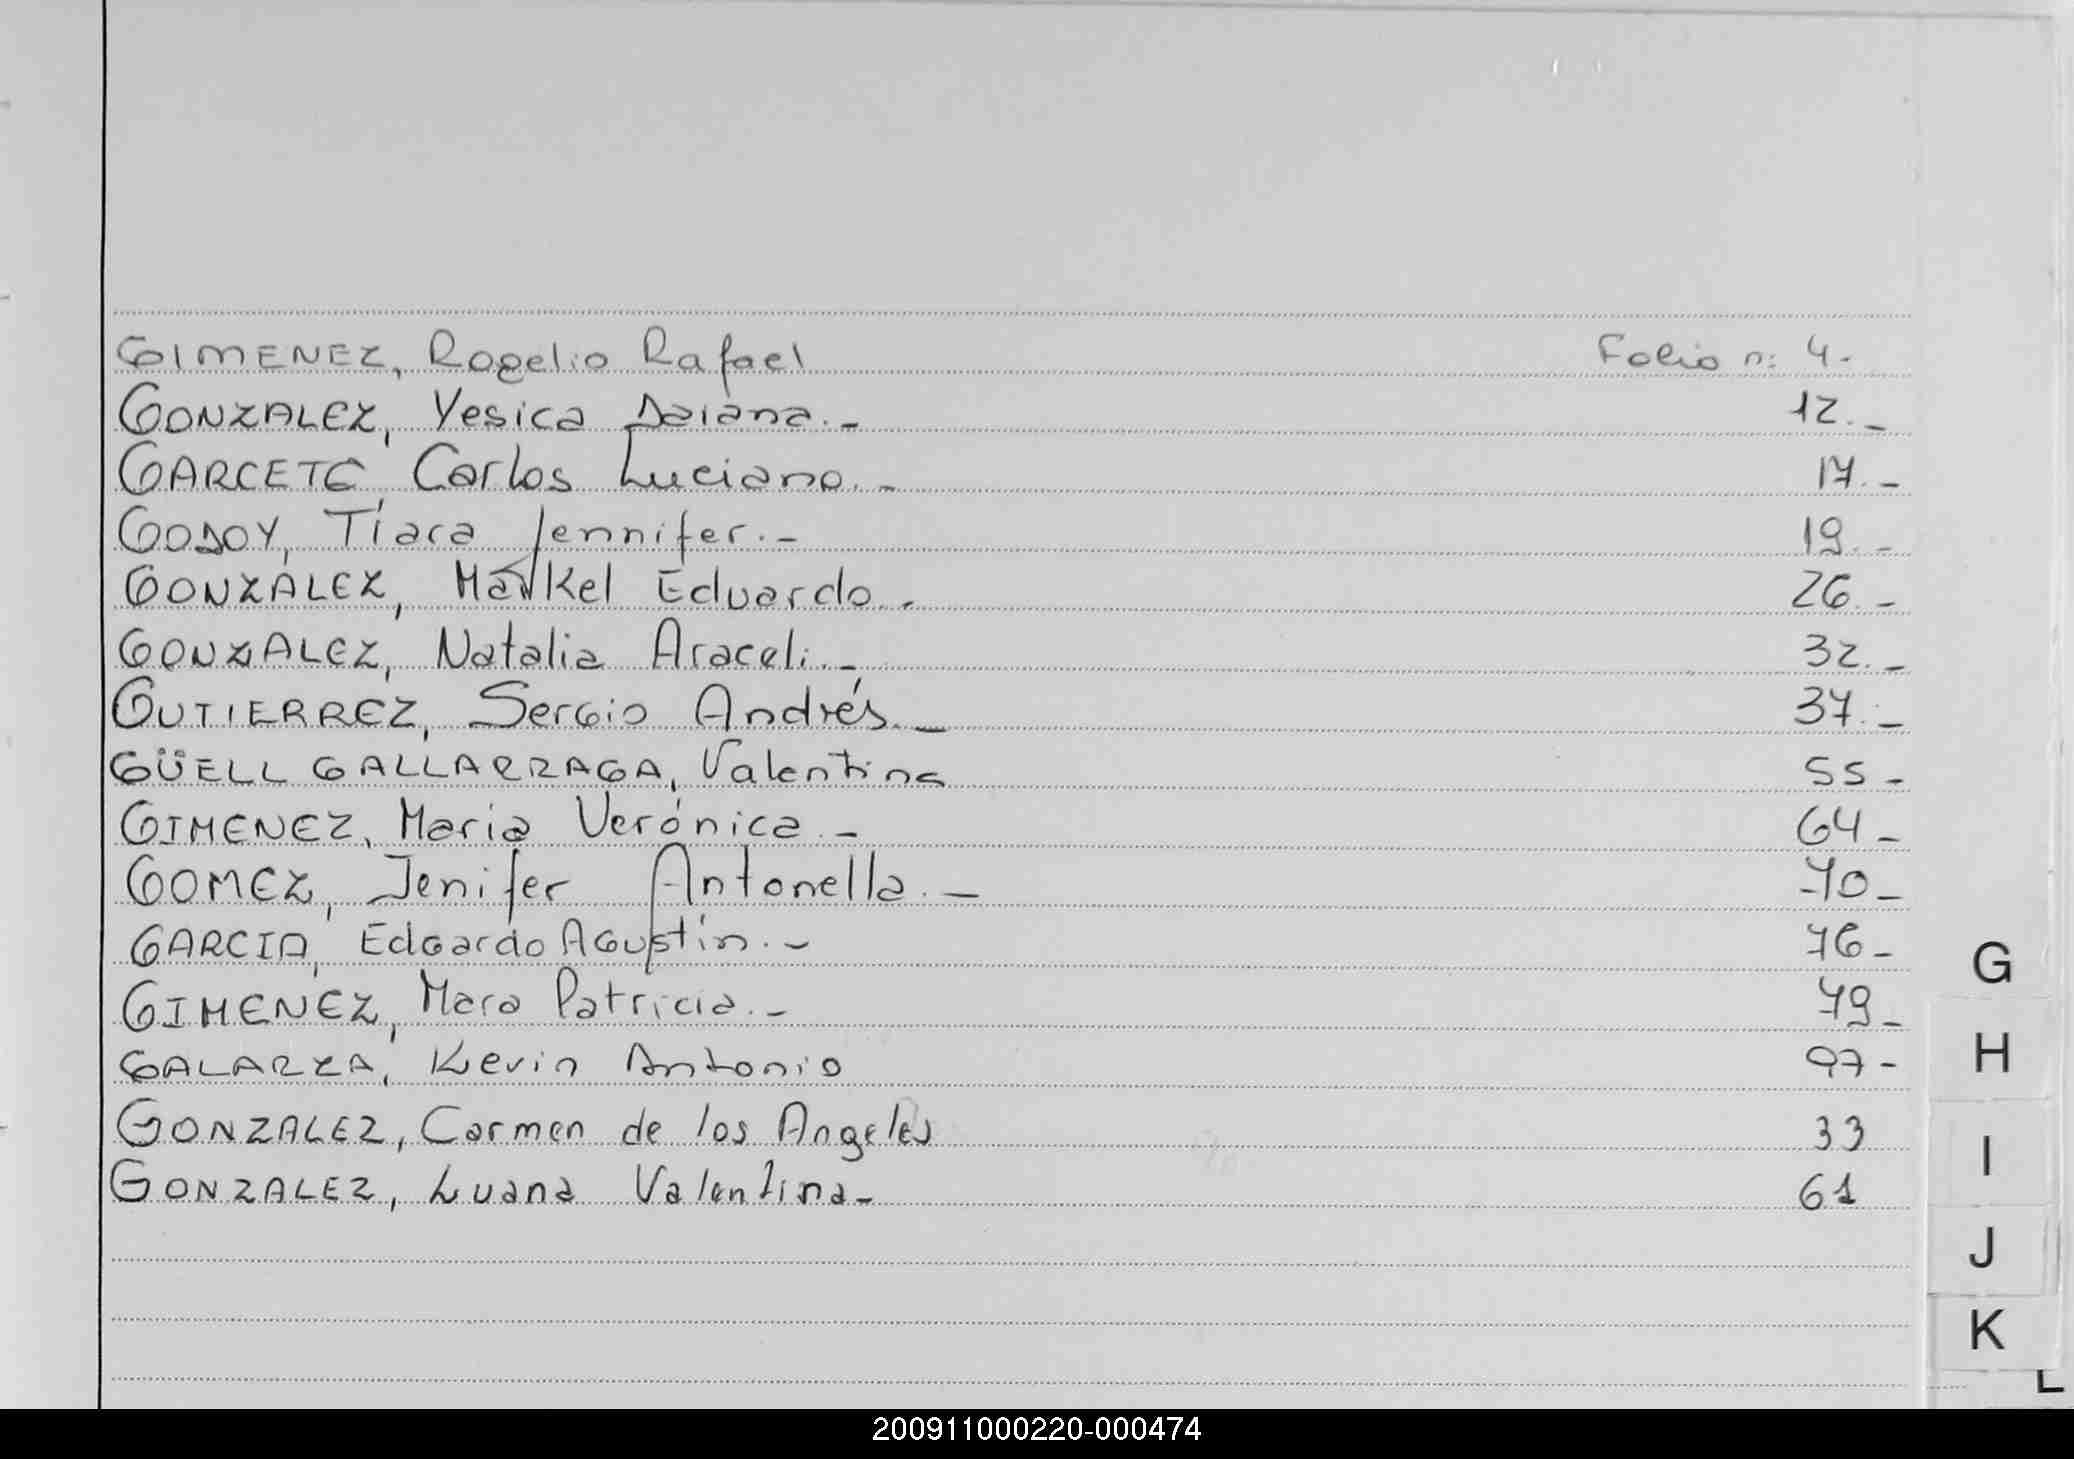 GIMENEZ, Rogelio Rafael Folio n: 4.-
GONZALEZ, Yesica Daiana.- 12.-
GARCETE, Carlos Luciano.- 17.-
GODOY, Tiara Jennifer.- 19.-
GONZÁLEZ, Maikel Eduardo.- 26.-
GONZALEZ, Natalia Araceli.- 32.-
GUTIERREZ, Sergio Andrés.- 37.-
GÜELL GALLARRAGA, Valentina 55-
GIMENEZ, Maria Verónica.- 64-
GOMEZ, Jenifer Antonella.- 70-
GARCIA, Edgardo Agustín.- 76-
GIMENEZ, Mara Patricia.- 79-
GALARZA, Kevin Antonio 97-
GONZALEZ, Carmen de los Angeles 33
GONZALEZ, Luana Valentina- 61
G
H
I
J
K
L
200911000220-000474